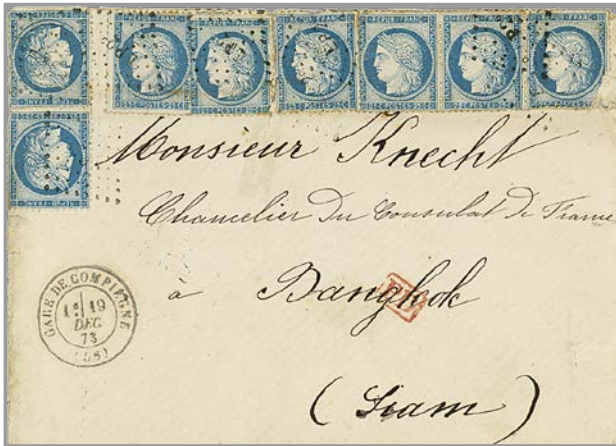 REPUB. FRANC.
25 POSTES 25
Monsieur Knecht
Chancelier Du Consulat De France
à Bangkok
(Siam)
GARE DE COMPIEGNE
1E 19
DEC.
73
(58)